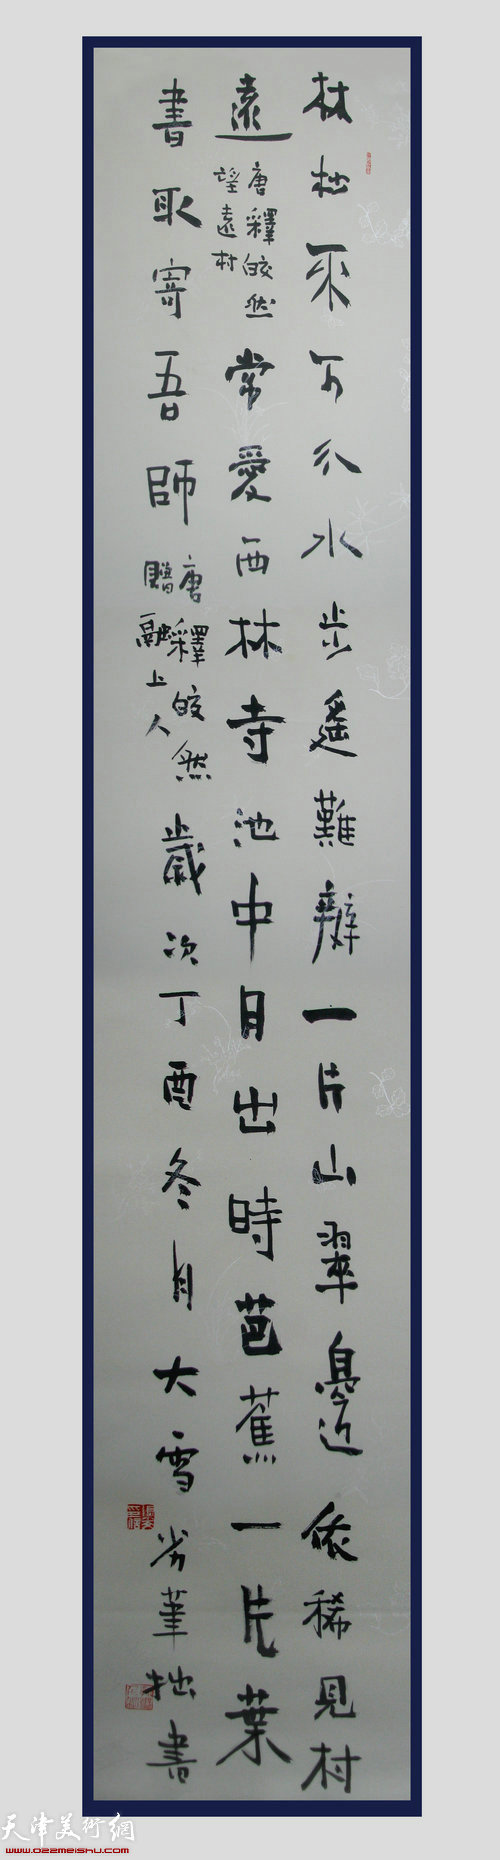 林杪不可分水步遙難辨一片山翠邊依稀見村
遠
唐釋皎然
望遠村
常愛西林寺池中月出時芭蕉一片葉
書取寄吾師
唐釋皎然
贈融上人
歲次丁酉冬月大雪劣筆拙書
天津美術網
www.022meishu.com